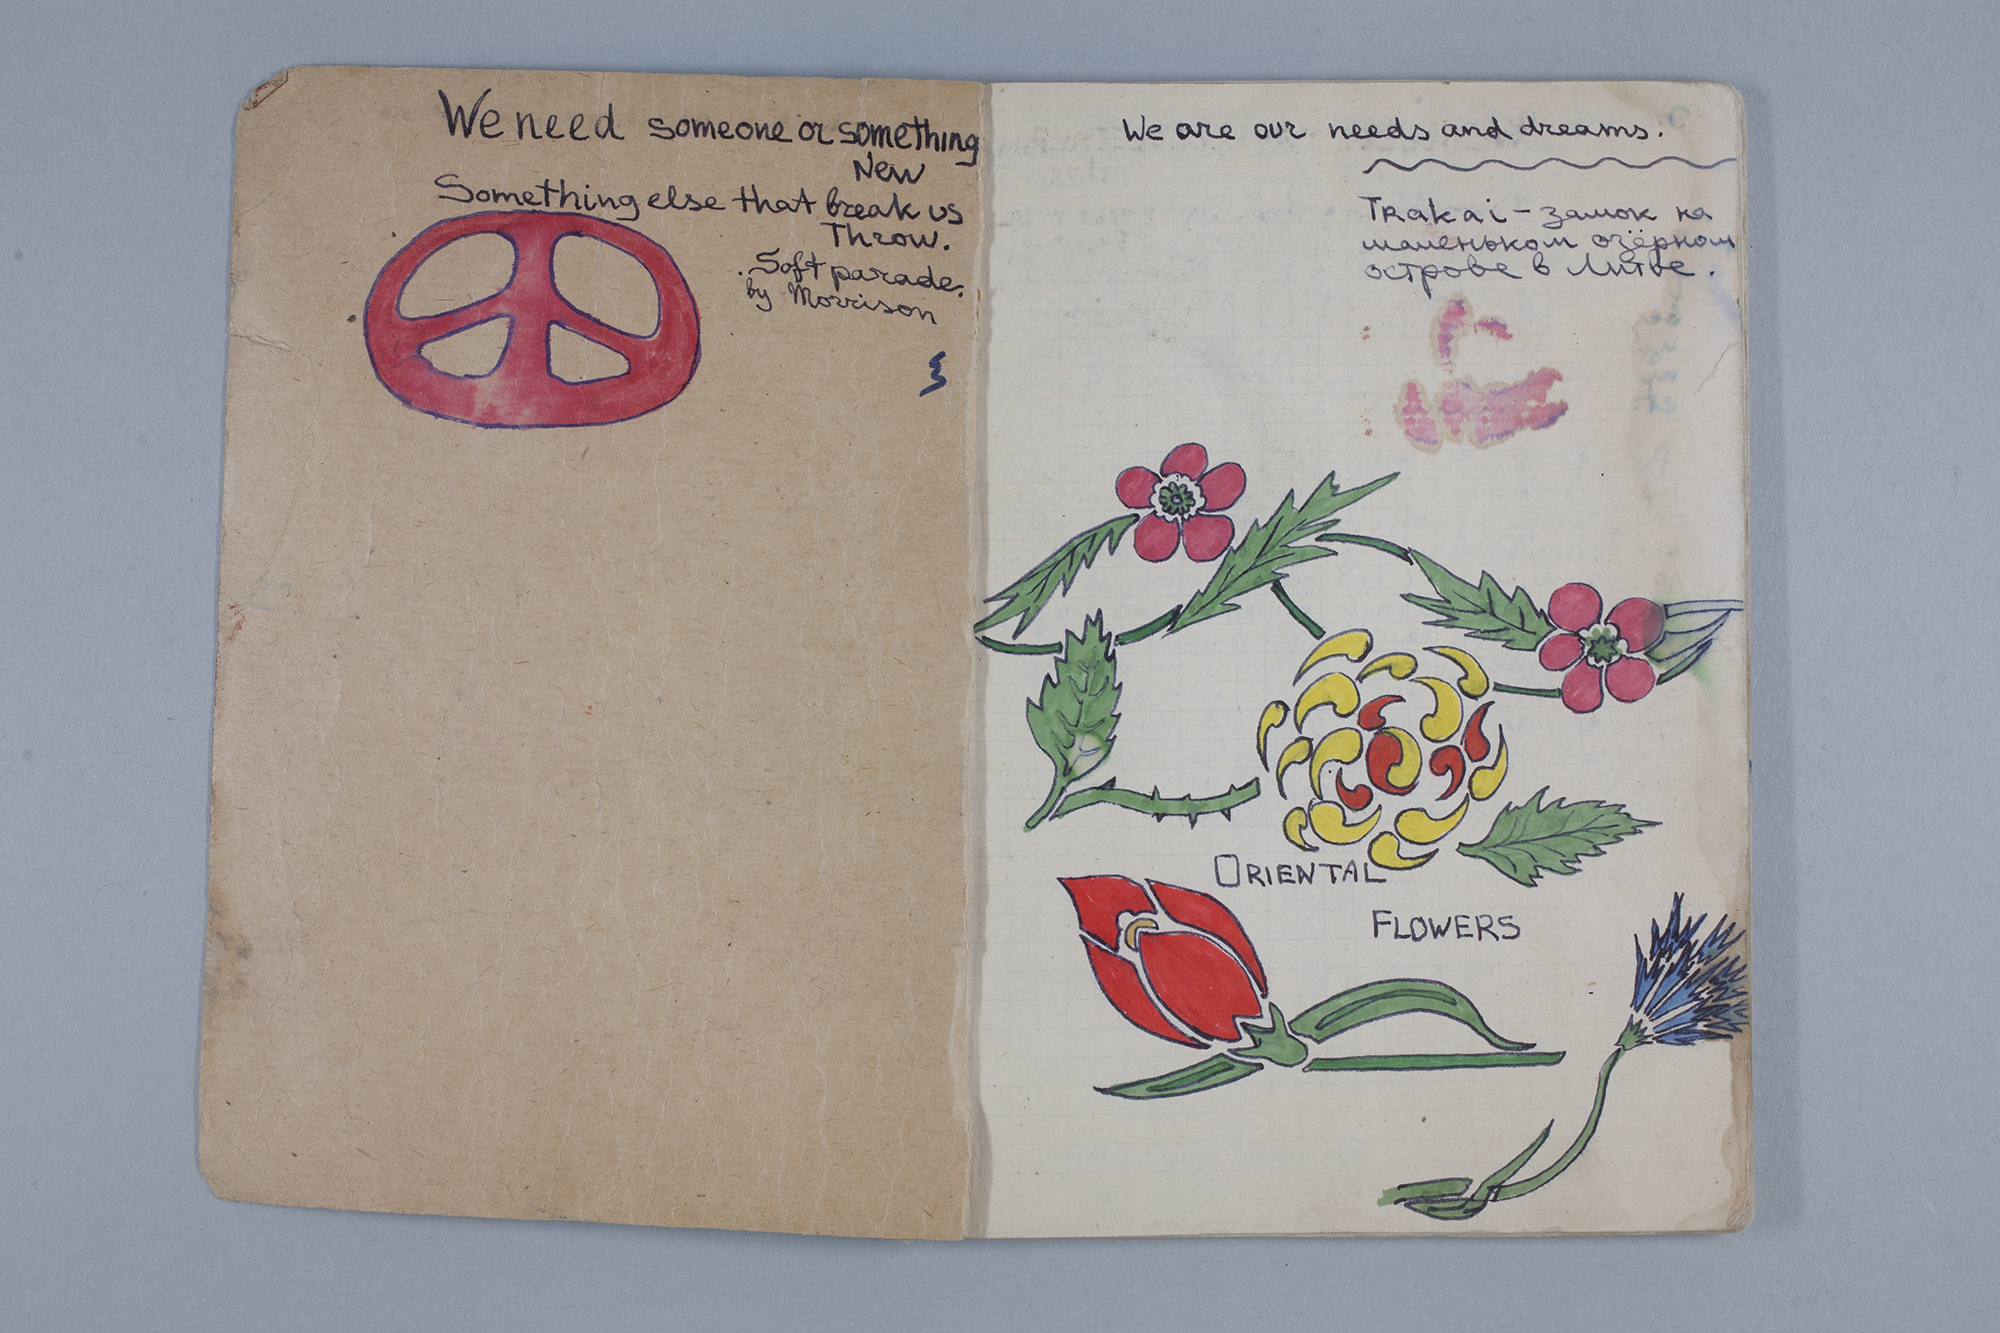 We need someone or something
New
Something else that break us
Throw.
. Soft parade.
by Morrison
We are our needs and dreams.
Trakai - замок на
маленьком озёрном
острове в Литве .
ORIENTAL
FLOWERS